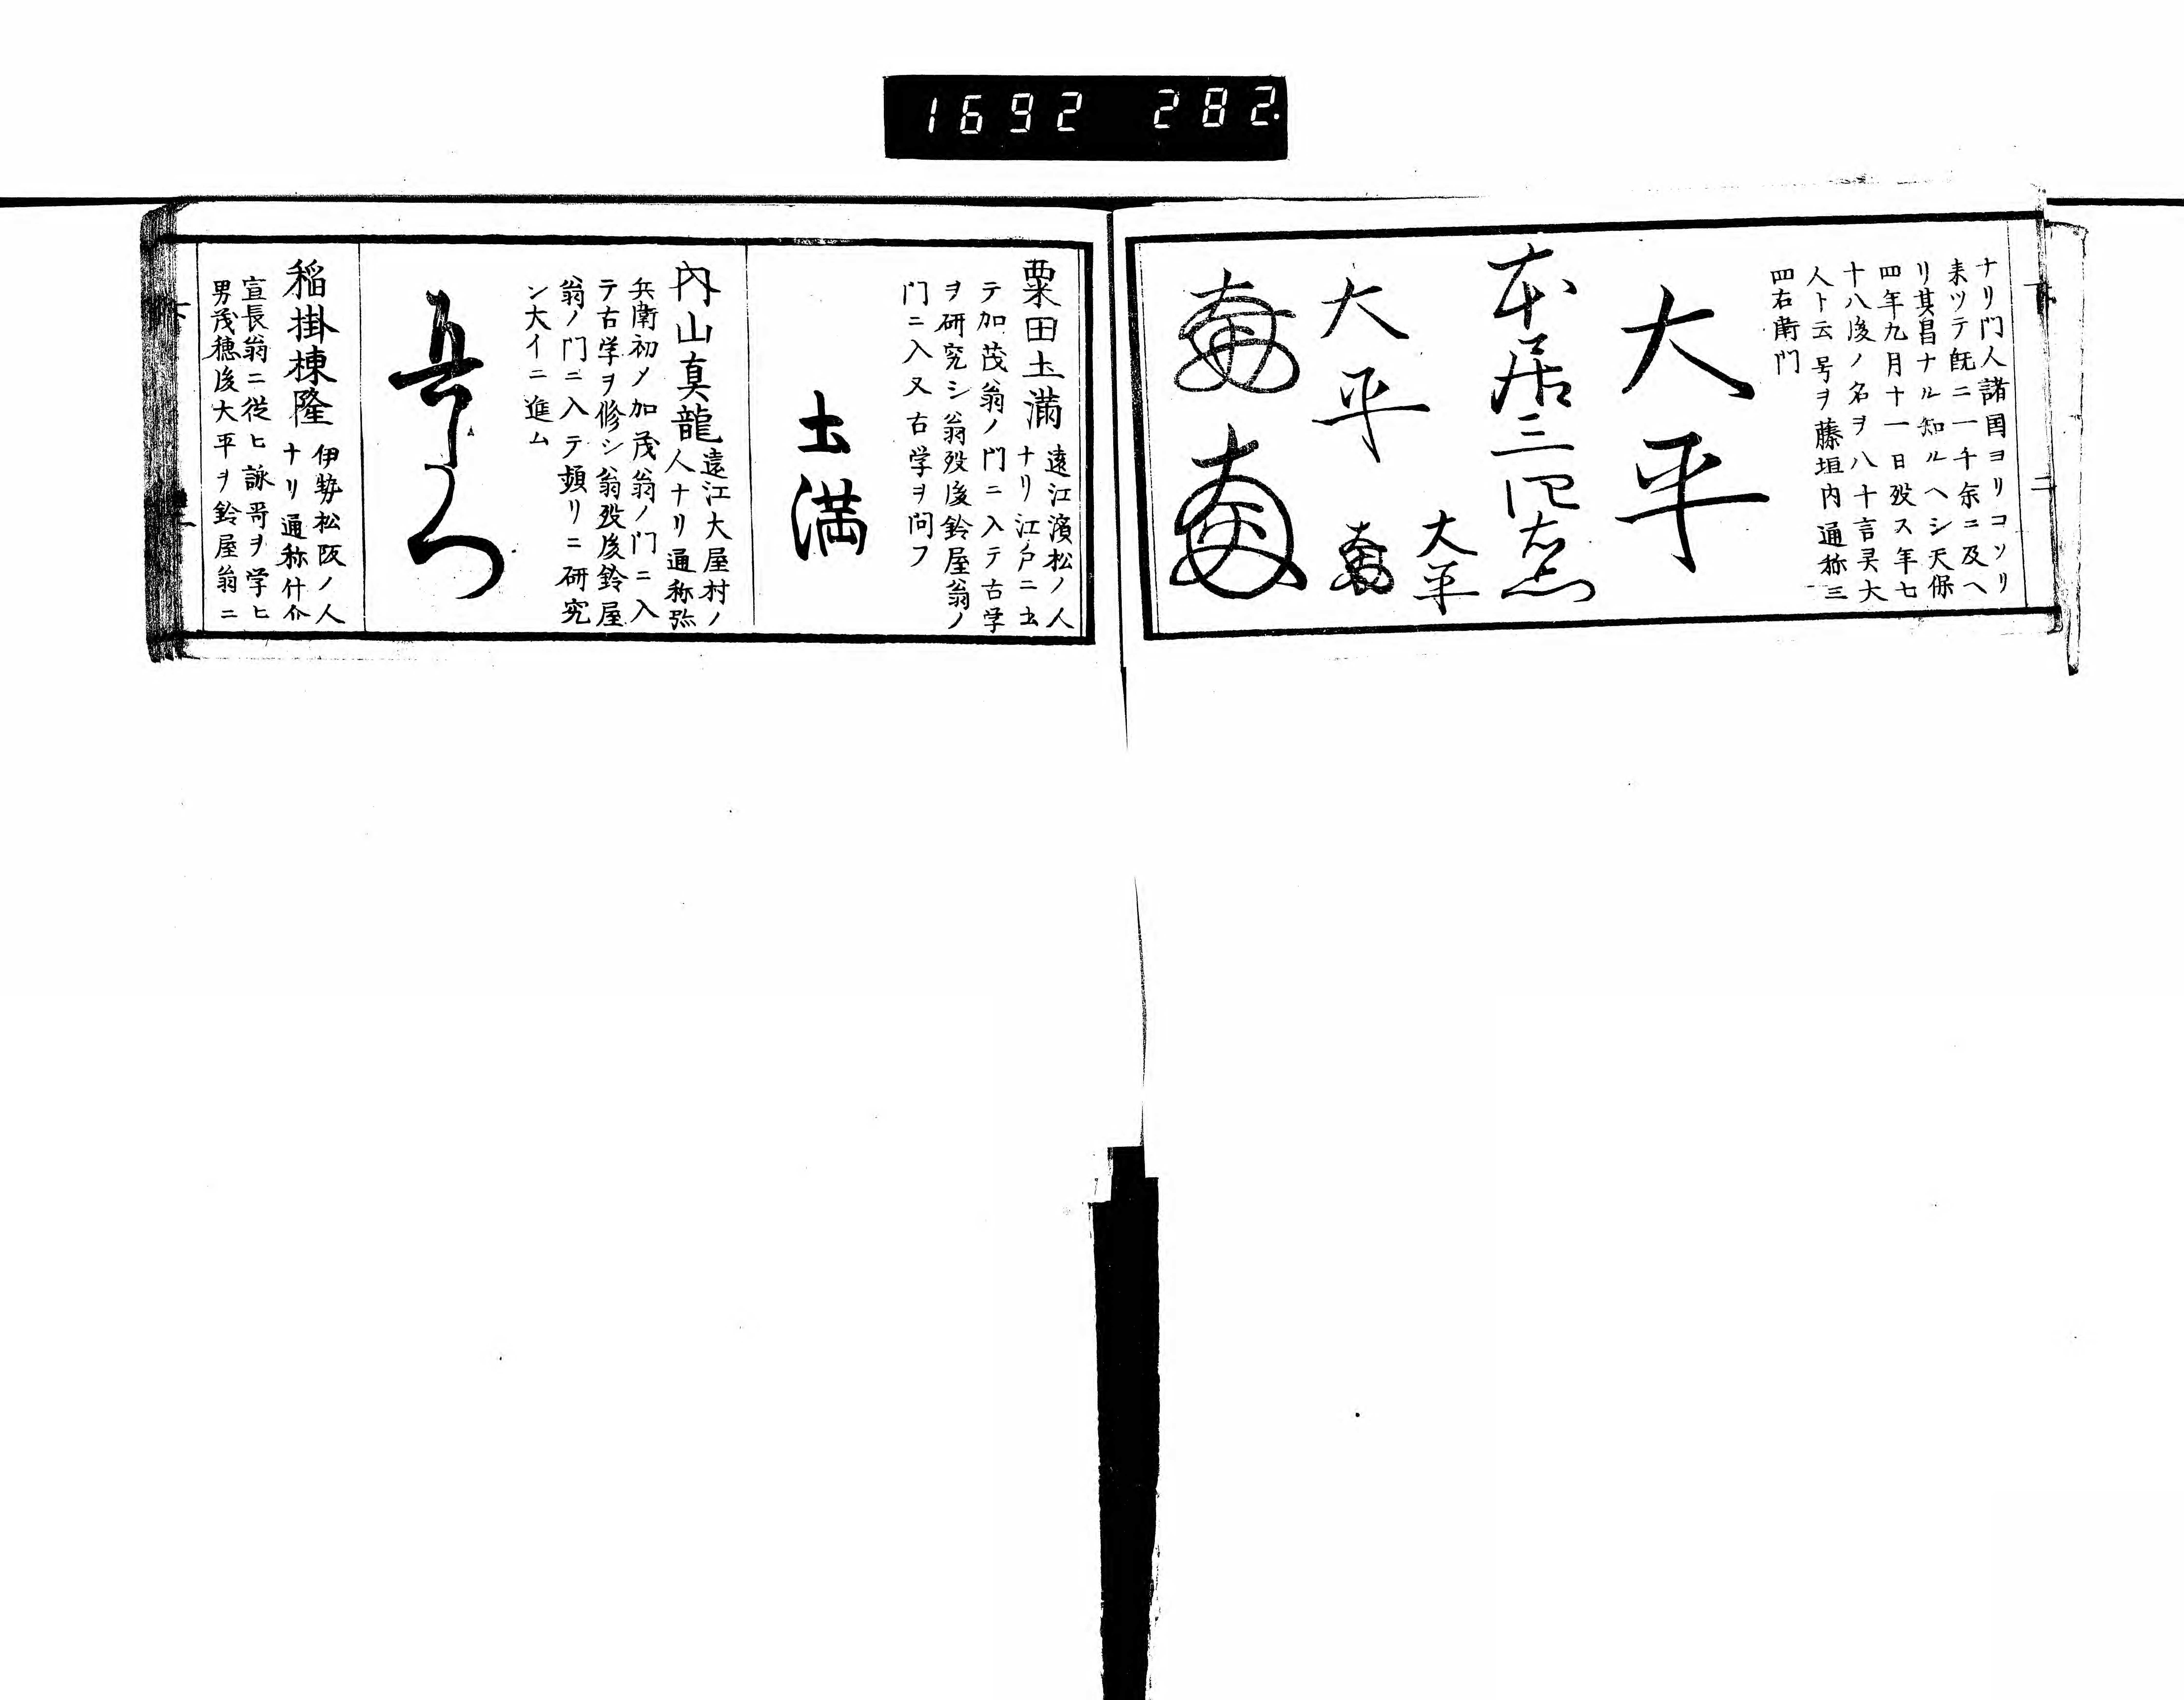 1692 282.
下 二
ナリ門人諸国ヨリコソリ
来ツテ既ニ一千余ニ及ヘ
リ其昌ナル知ルヘシ天保
四年九月十一日歿ス年七
十八後ノ名ヲ八十言霊大
人ト云号ヲ藤垣内通称三
四右衛門
大平
本居三四右衛門
大平
大平
粟田土満
遠江濱松ノ人
ナリ江戸ニ出
テ加茂翁ノ門ニ入テ古学
ヲ研究シ翁歿後鈴屋翁ノ
門ニ入又古学ヲ問フ
土満
内山真龍
遠江大屋村ノ
人ナリ通称弥
兵衛初メ加茂翁ノ門ニ入
テ古学ヲ修シ翁歿後鈴屋
翁ノ門ニ入テ頻リニ研究
ン大イニ進ム
稲掛棟隆
伊勢松阪ノ人
ナリ通称什介
宣長翁ニ従ヒ詠哥ヲ学ヒ
男茂穂後大平ヲ鈴屋翁ニ